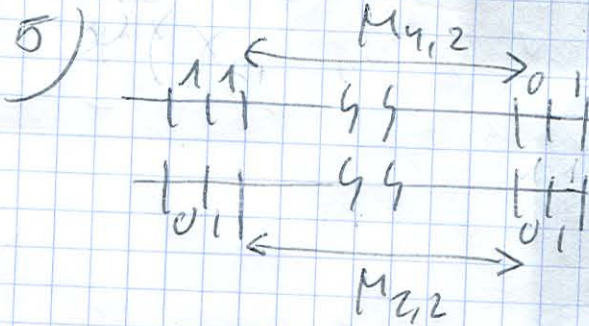 б)
M4,2
1 1 0 1
0 1 0 1
M2,2